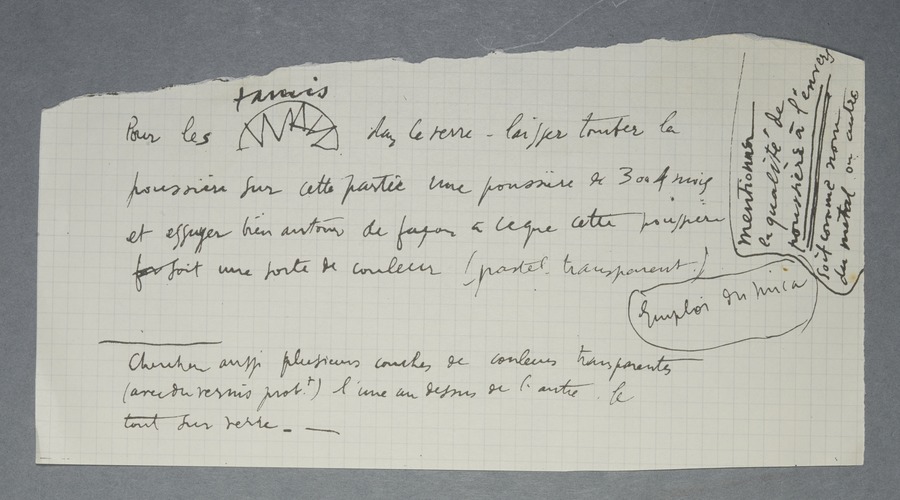 tamis
Pour les dans le verre - laisser tomber la
poussière sur cette partie une poussière de 3 ou 4 mois
et essuyer bien autour de façon à ce que cette poussière
soit une sorte de couleur (pastel transparent)
Emploi du mica
Chercher aussi plusieurs couches de couleurs transparentes
(avec du vernis prob.t) l'une au dessus de l'autre. le
tout sur verre. —
mentionner
la qualité de
poussière à l'envers
soit comme nom
du métal ou autre